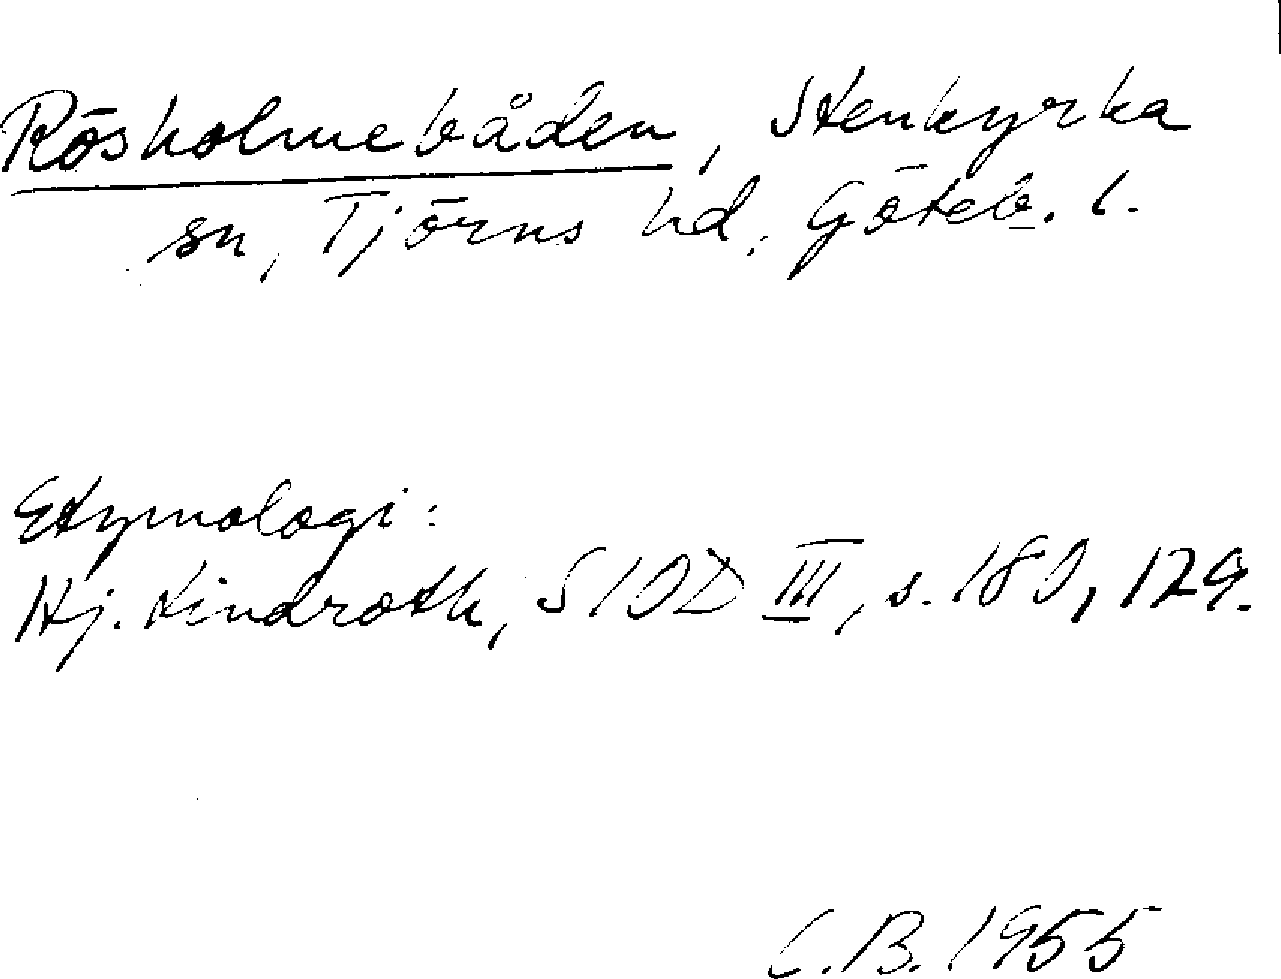 Rösholmebåden, Stenkyrka
sn, Tjörns hd, Göteb. l.
Etymologi:
Hj. Lindroth, SIOD III, s. 180, 129.
C.B. 1955